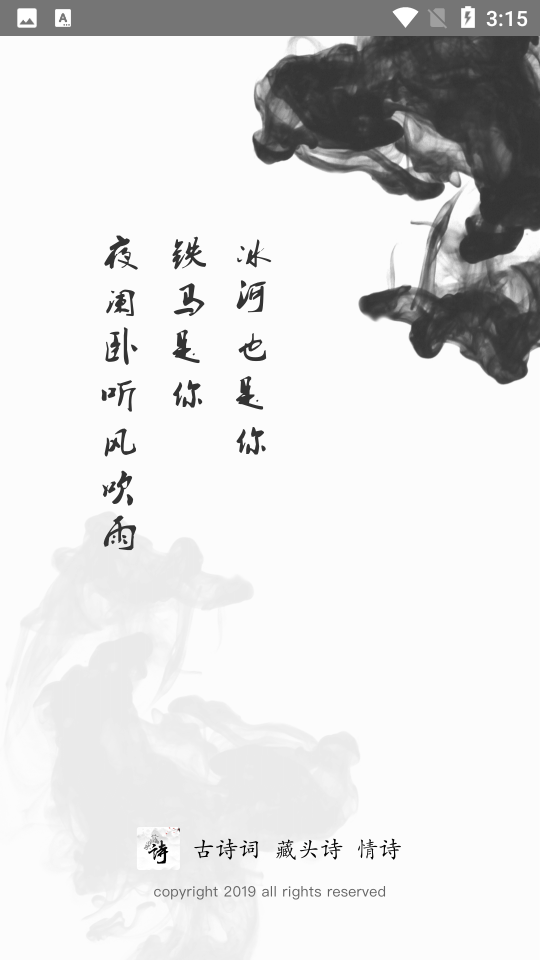 3:15
夜阑卧听风吹雨
铁马是你
冰河也是你
诗
古诗词 藏头诗 情诗
copyright 2019 all rights reserved